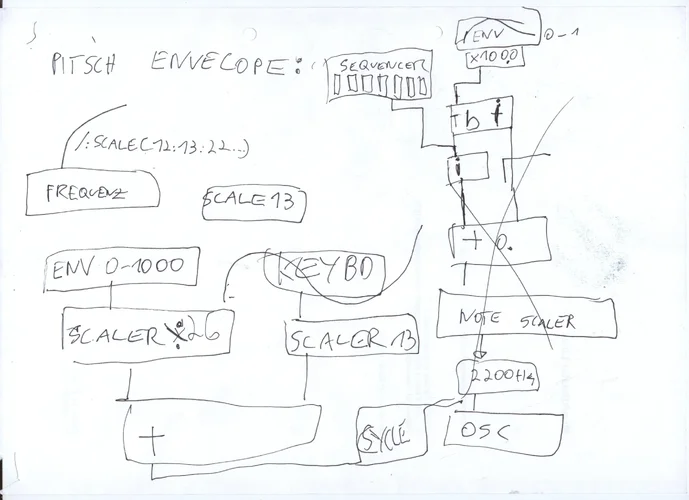 PITSCH ENVELOPE:
SEQUENCER
ENV 0-1
x1000
/:SCALE(12:13:22...)
t b f
FREQUENZ
SCALE 13
i
+ 0.
ENV 0-1000
KEYBD
SCALER 26
SCALER 13
NOTE SCALER
2200Hz
+
SYCLE
OSC